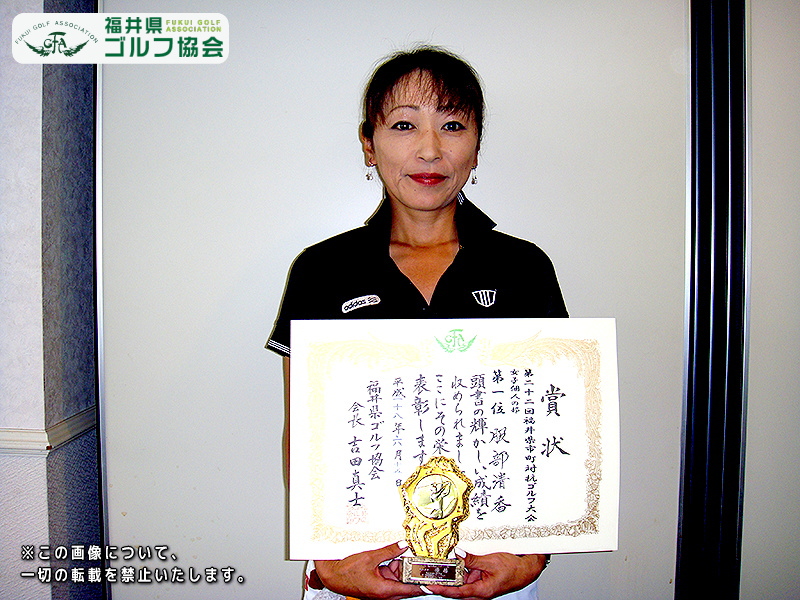 FUKUI GOLF ASSOCIATION
福井県
FUKUI GOLF
ASSOCIATION
ゴルフ協会
adidas
賞状
第二十二回福井県市町対抗ゴルフ大会
女子個人の部
第一位 服部清香
頭書の輝かしい成績を
収められまし
ここにその栄
表彰します
平成十八年六月
福井県ゴルフ協会
会長 吉田真士
※この画像について、
一切の転載を禁止いたします。